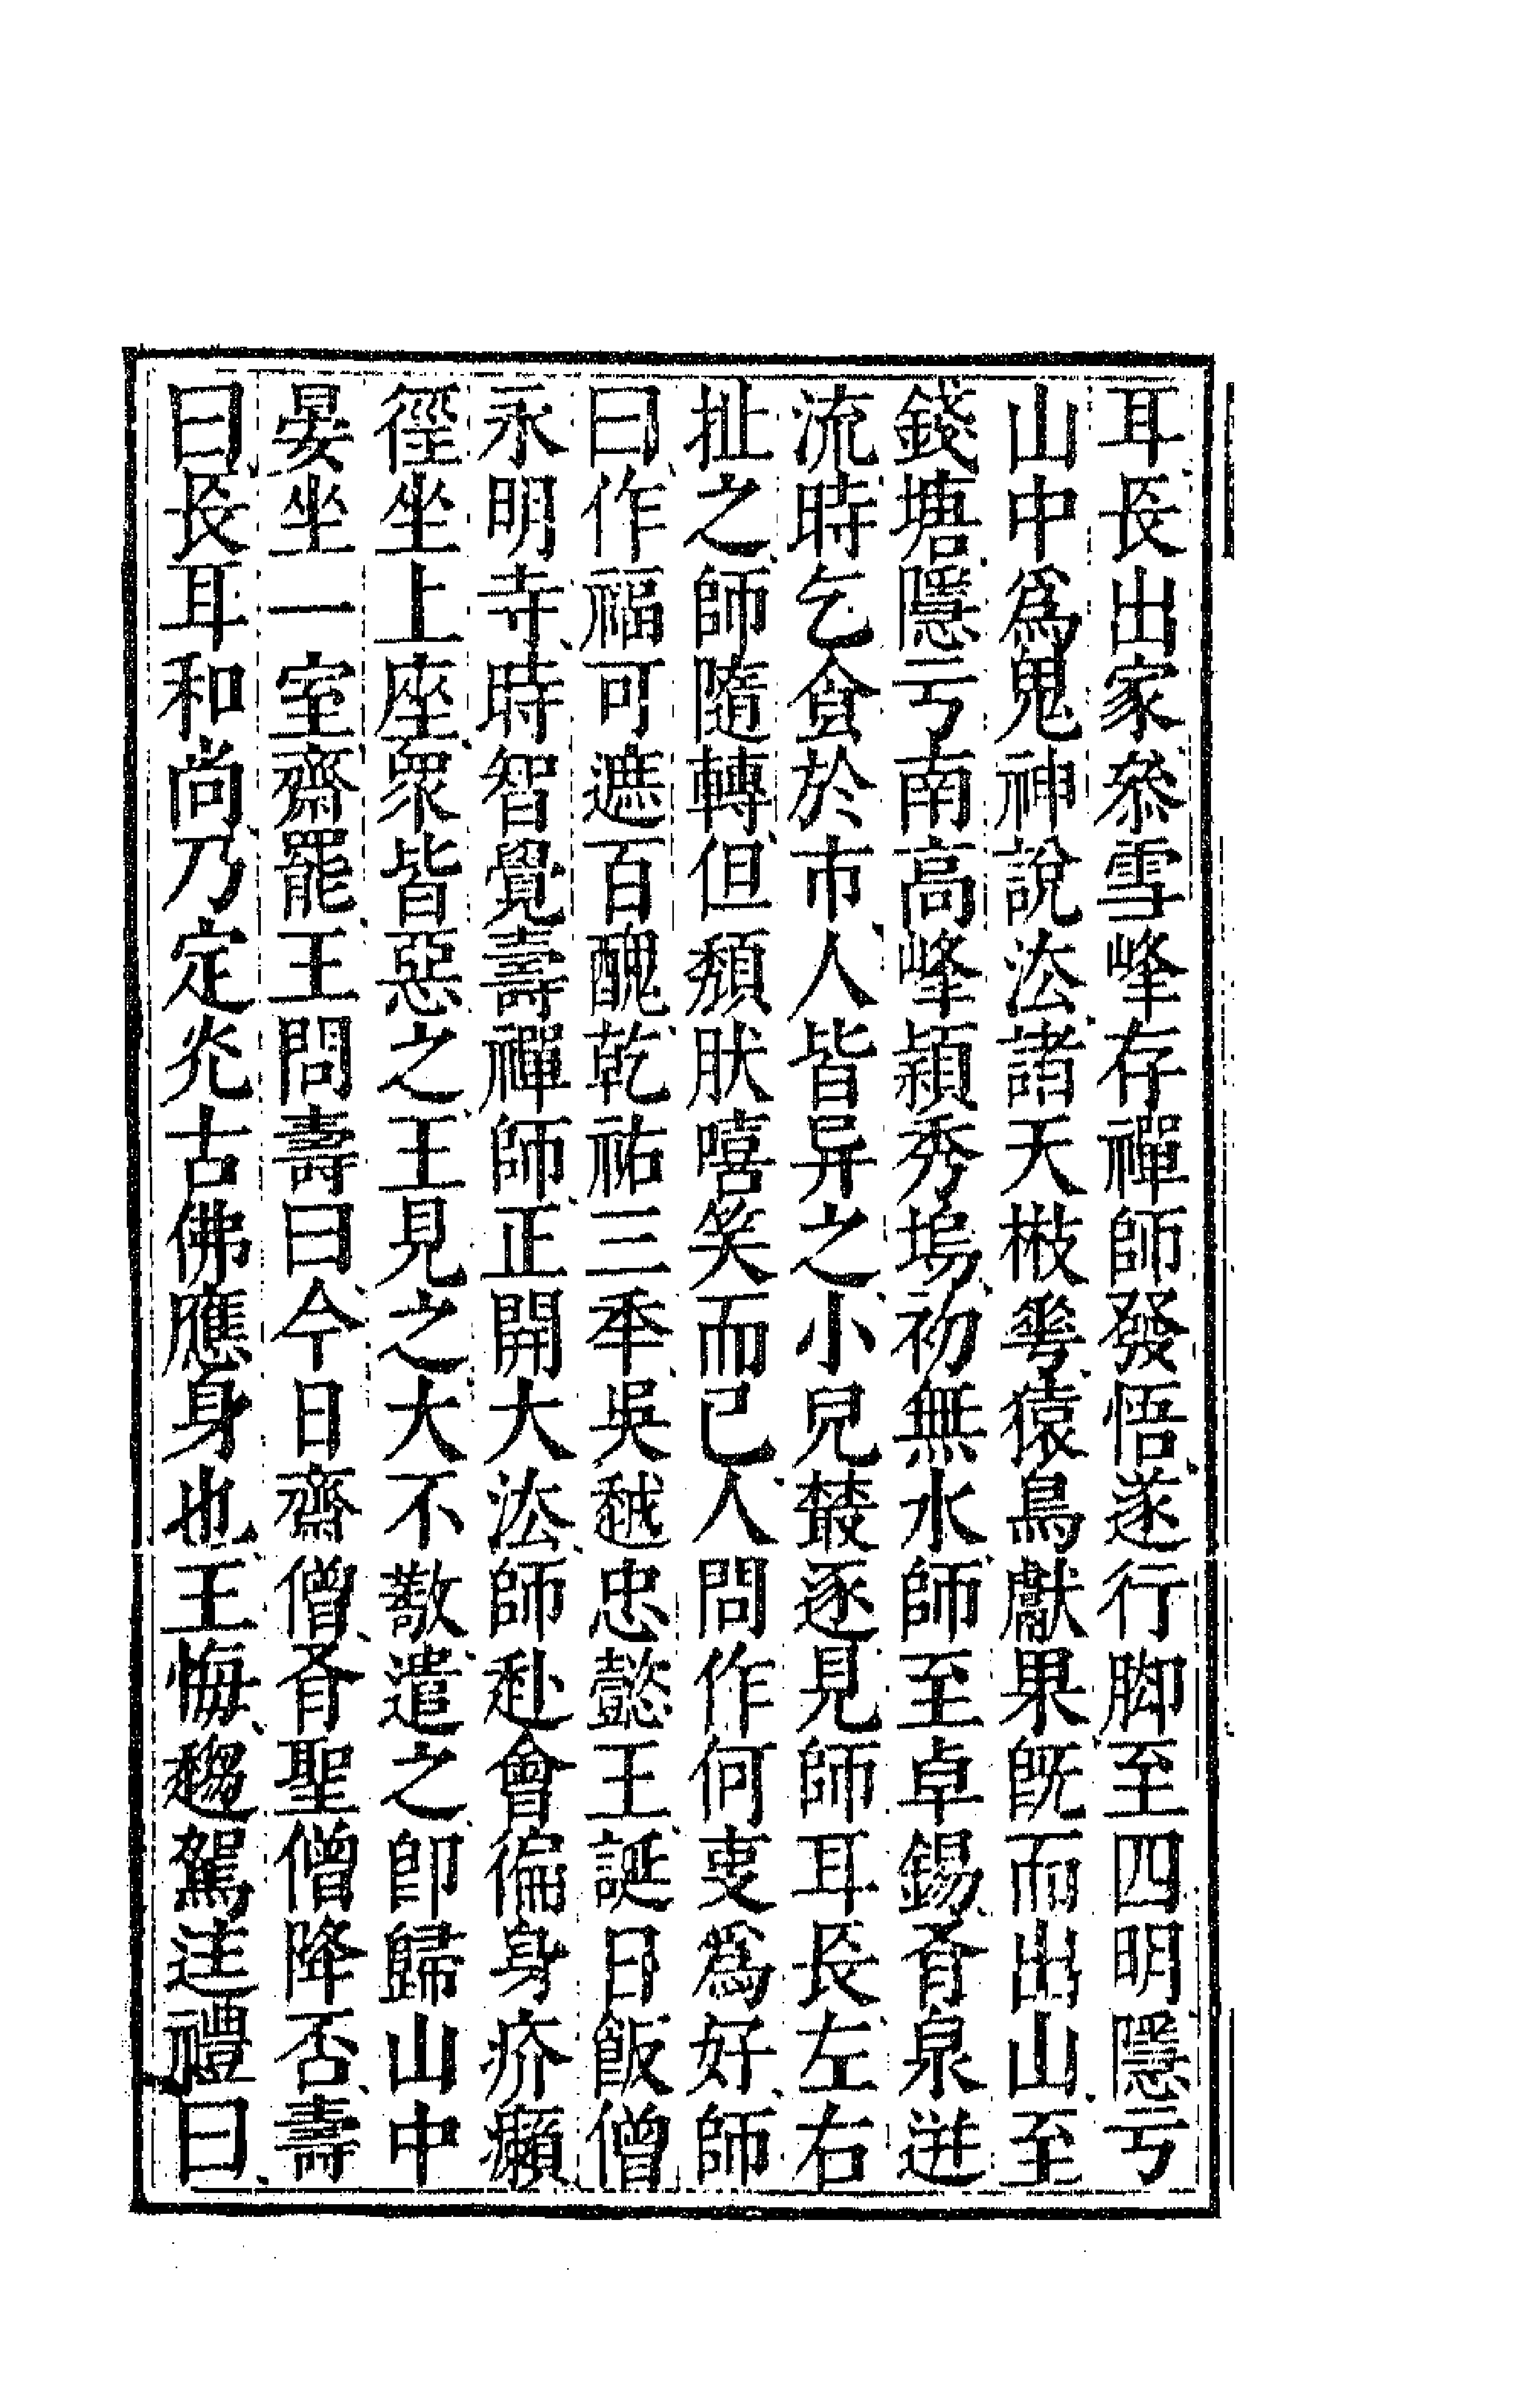 耳長出家叅雪峰存禪師發悟遂行脚至四明隱亐
山中爲鬼神說法諸天㪚雩猿鳥獻果旣而出山至
錢塘隱亐南高峰穎秀塢初無水師至卓錫脊泉迸
流時乞食於市人皆异之小兒䕺逐見師耳長左右
扯之師隨轉但頮肰嘻笑而已人問作何叓爲好師
曰作福可遮百醜乾祐三秊吳越忠懿王誕日飯僧
永明寺時智覺壽禪師正開大法師赴會徧身疥癩
徑坐上座衆皆惡之王見之大不敬遣之卽歸山中
晏坐一室齋罷王問壽曰今日齋僧脊聖僧降否壽
曰長耳和尚乃定灮古佛應身也王悔趨駕迬禮曰